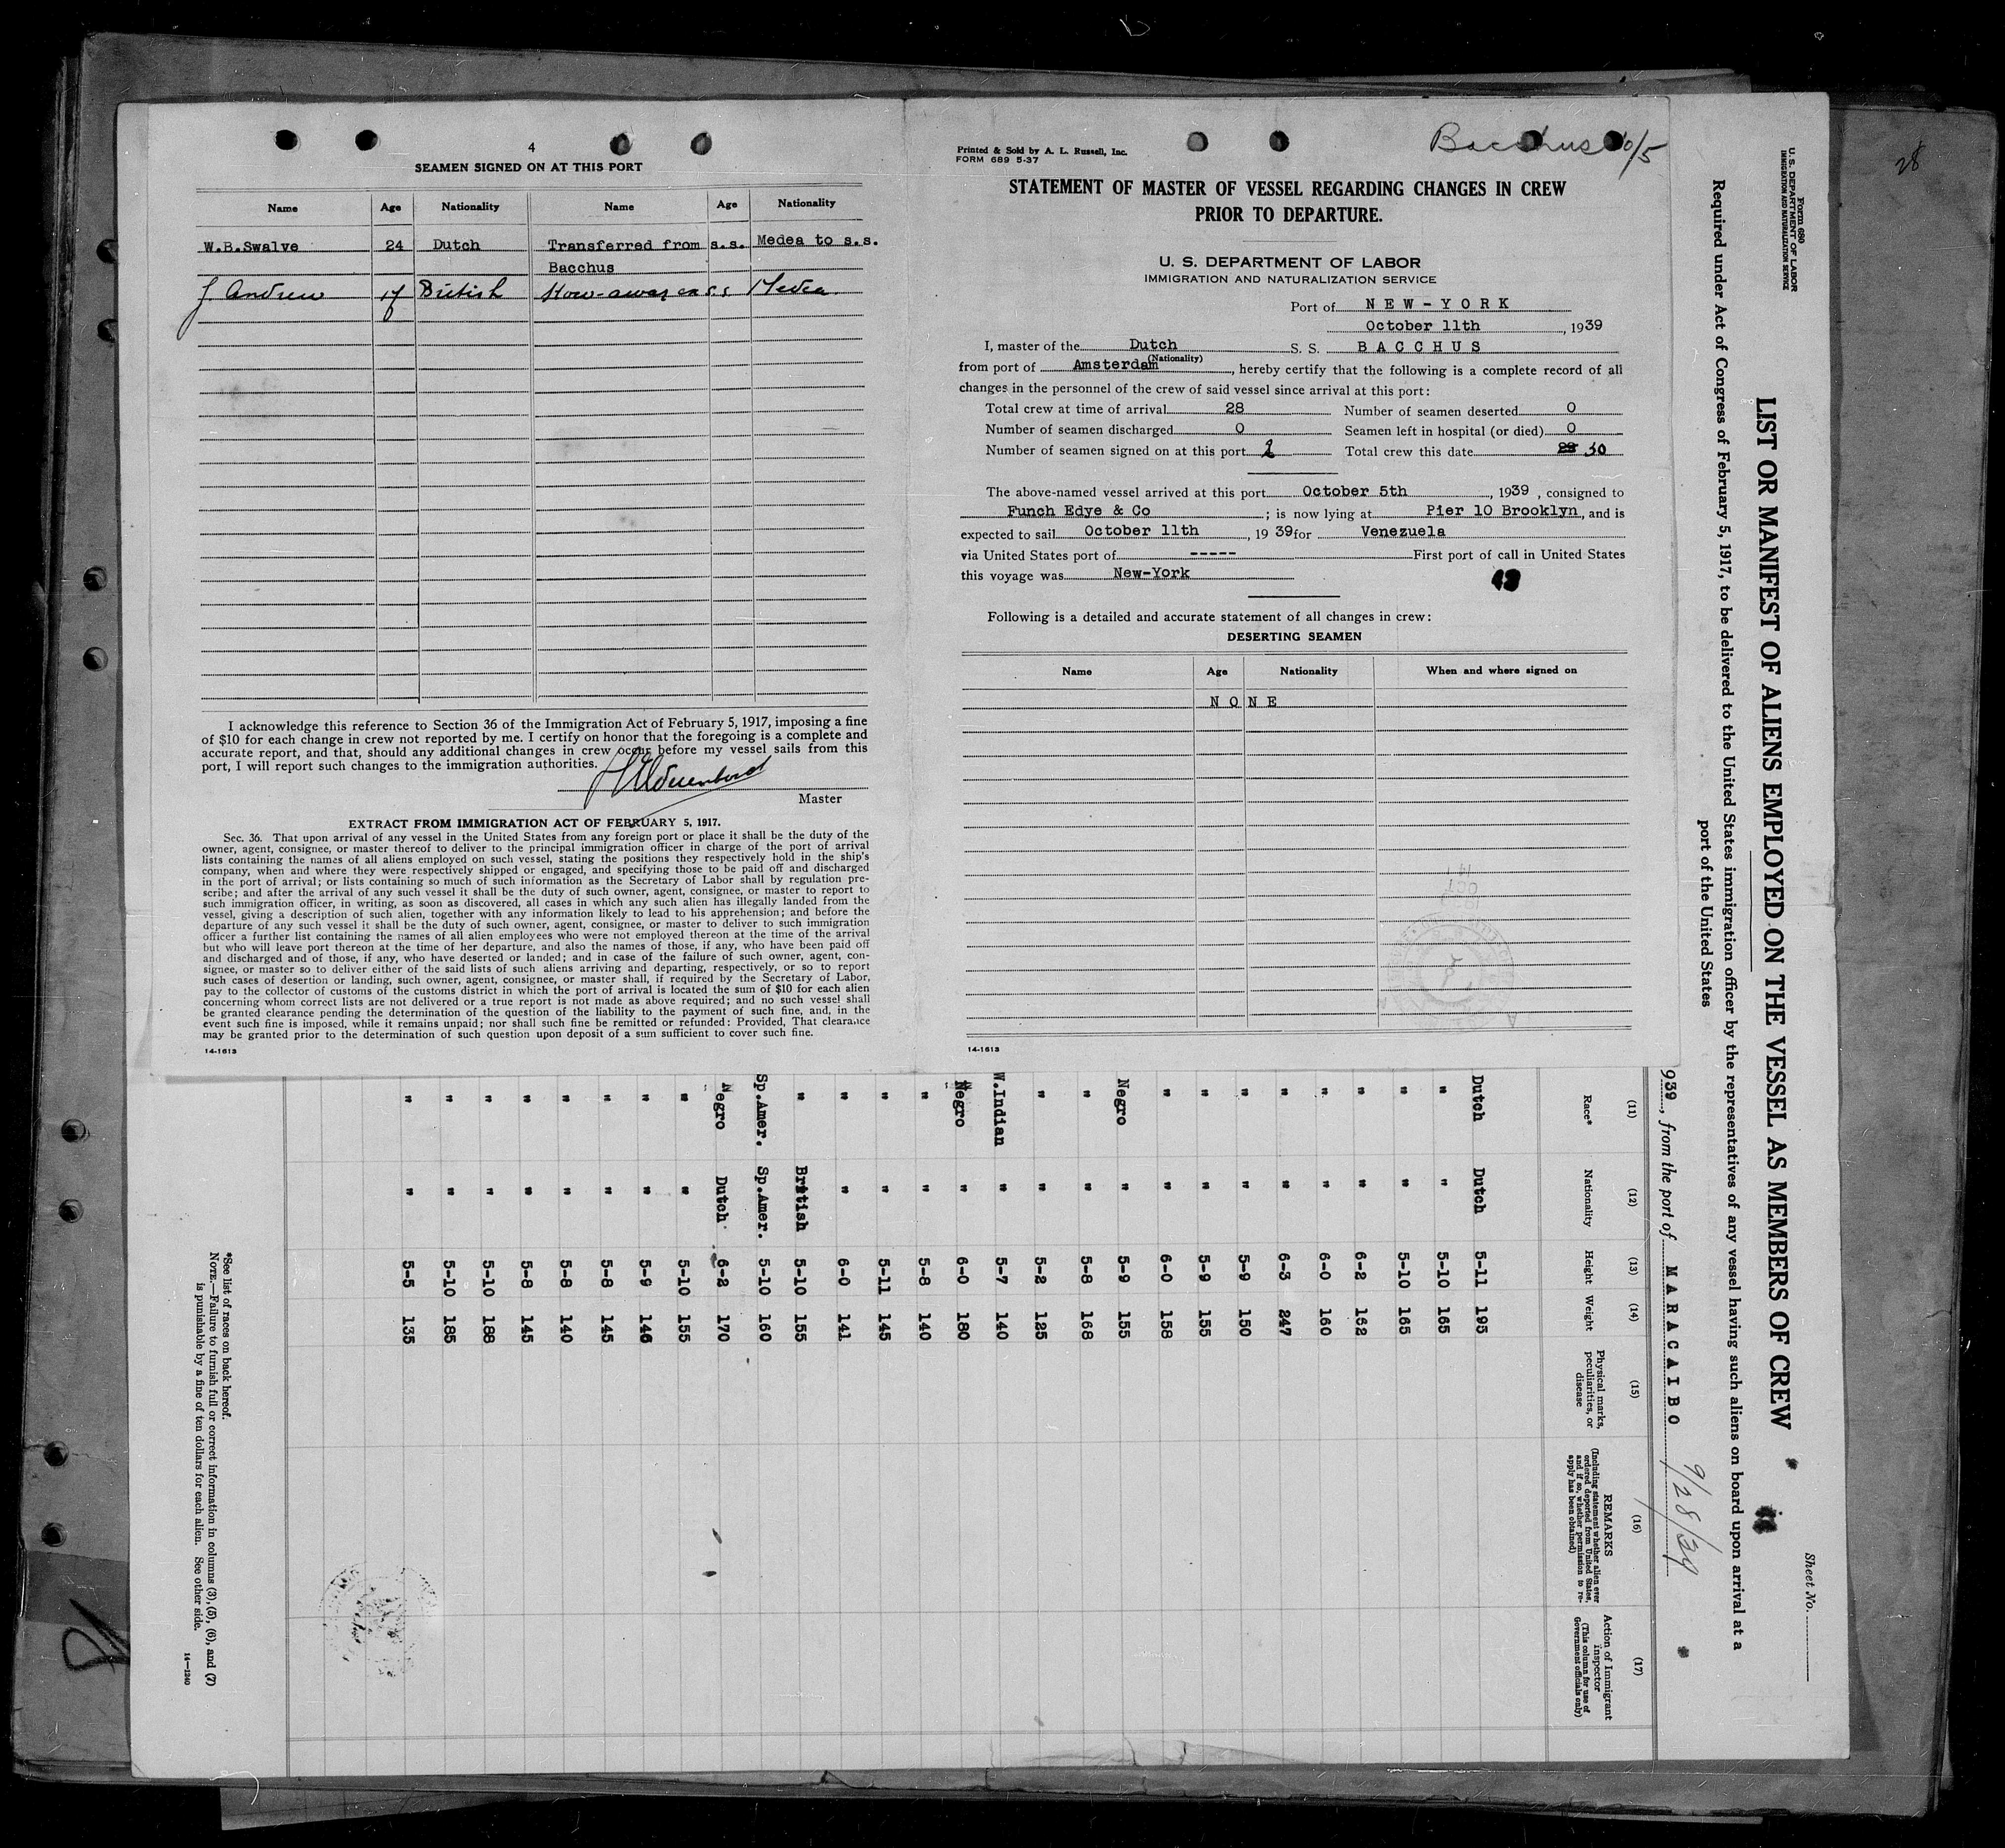 4
SEAMEN SIGNED ON AT THIS PORT
Name Age Nationality Name Age Nationality
W.B.Swalve 24 Dutch Transferred from s.s. Medea to s.s.
Bacchus
J. Andrew 17 British Stow-away ex s.s Medea
I acknowledge this reference to Section 36 of the Immigration Act of February 5, 1917, imposing a fine
of $10 for each change in crew not reported by me. I certify on honor that the foregoing is a complete and
accurate report, and that, should any additional changes in crew occur before my vessel sails from this
port, I will report such changes to the immigration authorities.
Master
EXTRACT FROM IMMIGRATION ACT OF FEBRUARY 5, 1917.
Sec. 36. That upon arrival of any vessel in the United States from any foreign port or place it shall be the duty of the
owner, agent, consignee, or master thereof to deliver to the principal immigration officer in charge of the port of arrival
lists containing the names of all aliens employed on such vessel, stating the positions they respectively hold in the ship's
company, when and where they were respectively shipped or engaged, and specifying those to be paid off and discharged
in the port of arrival; or lists containing so much of such information as the Secretary of Labor shall by regulation pre-
scribe; and after the arrival of any such vessel it shall be the duty of such owner, agent, consignee, or master to report to
such immigration officer, in writing, as soon as discovered, all cases in which any such alien has illegally landed from the
vessel, giving a description of such alien, together with any information likely to lead to his apprehension; and before the
departure of any such vessel it shall be the duty of such owner, agent, consignee, or master to deliver to such immigration
officer a further list containing the names of all alien employees who were not employed thereon at the time of the arrival
but who will leave port thereon at the time of her departure, and also the names of those, if any, who have been paid off
and discharged and of those, if any, who have deserted or landed; and in case of the failure of such owner, agent, con-
signee, or master so to deliver either of the said lists of such aliens arriving and departing, respectively, or so to report
such cases of desertion or landing, such owner, agent, consignee, or master shall, if required by the Secretary of Labor,
pay to the collector of customs of the customs district in which the port of arrival is located the sum of $10 for each alien
concerning whom correct lists are not delivered or a true report is not made as above required; and no such vessel shall
be granted clearance pending the determination of the question of the liability to the payment of such fine, and, in the
event such fine is imposed, while it remains unpaid; nor shall such fine be remitted or refunded: Provided, That clearance
may be granted prior to the determination of such question upon deposit of a sum sufficient to cover such fine.
14-1613
Bacchus 10/5
Printed & Sold by A. L. Russell, Inc.
FORM 689 5-37
STATEMENT OF MASTER OF VESSEL REGARDING CHANGES IN CREW
PRIOR TO DEPARTURE.
U. S. DEPARTMENT OF LABOR
IMMIGRATION AND NATURALIZATION SERVICE
Port of NEW-YORK
October 11th, 1939
I, master of the Dutch S. S. BACCHUS
(Nationality)
from port of Amsterdam, hereby certify that the following is a complete record of all
changes in the personnel of the crew of said vessel since arrival at this port:
Total crew at time of arrival 28 Number of seamen deserted 0
Number of seamen discharged 0 Seamen left in hospital (or died) 0
Number of seamen signed on at this port 2 Total crew this date 30
The above-named vessel arrived at this port October 5th, 1939, consigned to
Funch Edye & Co; is now lying at Pier 10 Brooklyn, and is
expected to sail October 11th, 1939 for Venezuela
via United States port of ----- First port of call in United States
this voyage was New-York
Following is a detailed and accurate statement of all changes in crew:
DESERTING SEAMEN
Name Age Nationality When and where signed on
NONE
14-1613
28
Form 680
U. S. DEPARTMENT OF LABOR
IMMIGRATION AND NATURALIZATION SERVICE
Sheet No.
LIST OR MANIFEST OF ALIENS EMPLOYED ON THE VESSEL AS MEMBERS OF CREW
Required under Act of Congress of February 5, 1917, to be delivered to the United States immigration officer by the representatives of any vessel having such aliens on board upon arrival at a
port of the United States
939, from the port of MARACAIBO 9/28/39
(11) (12) (13) (14) (15) (16) (17)
Race* Nationality Height Weight Physical marks, peculiarities, or disease REMARKS (Including statement whether alien ever ordered deported from United States, and if so, whether permission to re-apply has been obtained) Action of Immigrant Inspector (This column for use of Government officials only)
Dutch Dutch 5-11 195
" " 5-10 165
" " 5-10 165
" " 6-2 162
" " 6-0 160
" " 6-3 247
" " 5-9 150
" " 5-9 155
" " 6-0 158
Negro " 5-9 155
" " 5-8 168
" " 5-2 125
W.Indian " 5-7 140
Negro " 6-0 180
" " 5-8 140
" " 5-11 145
" " 6-0 141
" British 5-10 155
Sp.Amer. Sp.Amer. 5-10 160
Negro Dutch 6-2 170
" " 5-10 155
" " 5-9 146
" " 5-8 145
" " 5-8 140
" " 5-8 145
" " 5-10 188
" " 5-10 185
" " 5-5 135
*See list of races on back hereof.
NOTE.—Failure to furnish full or correct information in columns (3), (5), (6), and (7)
is punishable by a fine of ten dollars for each alien. See other side.
14-1240